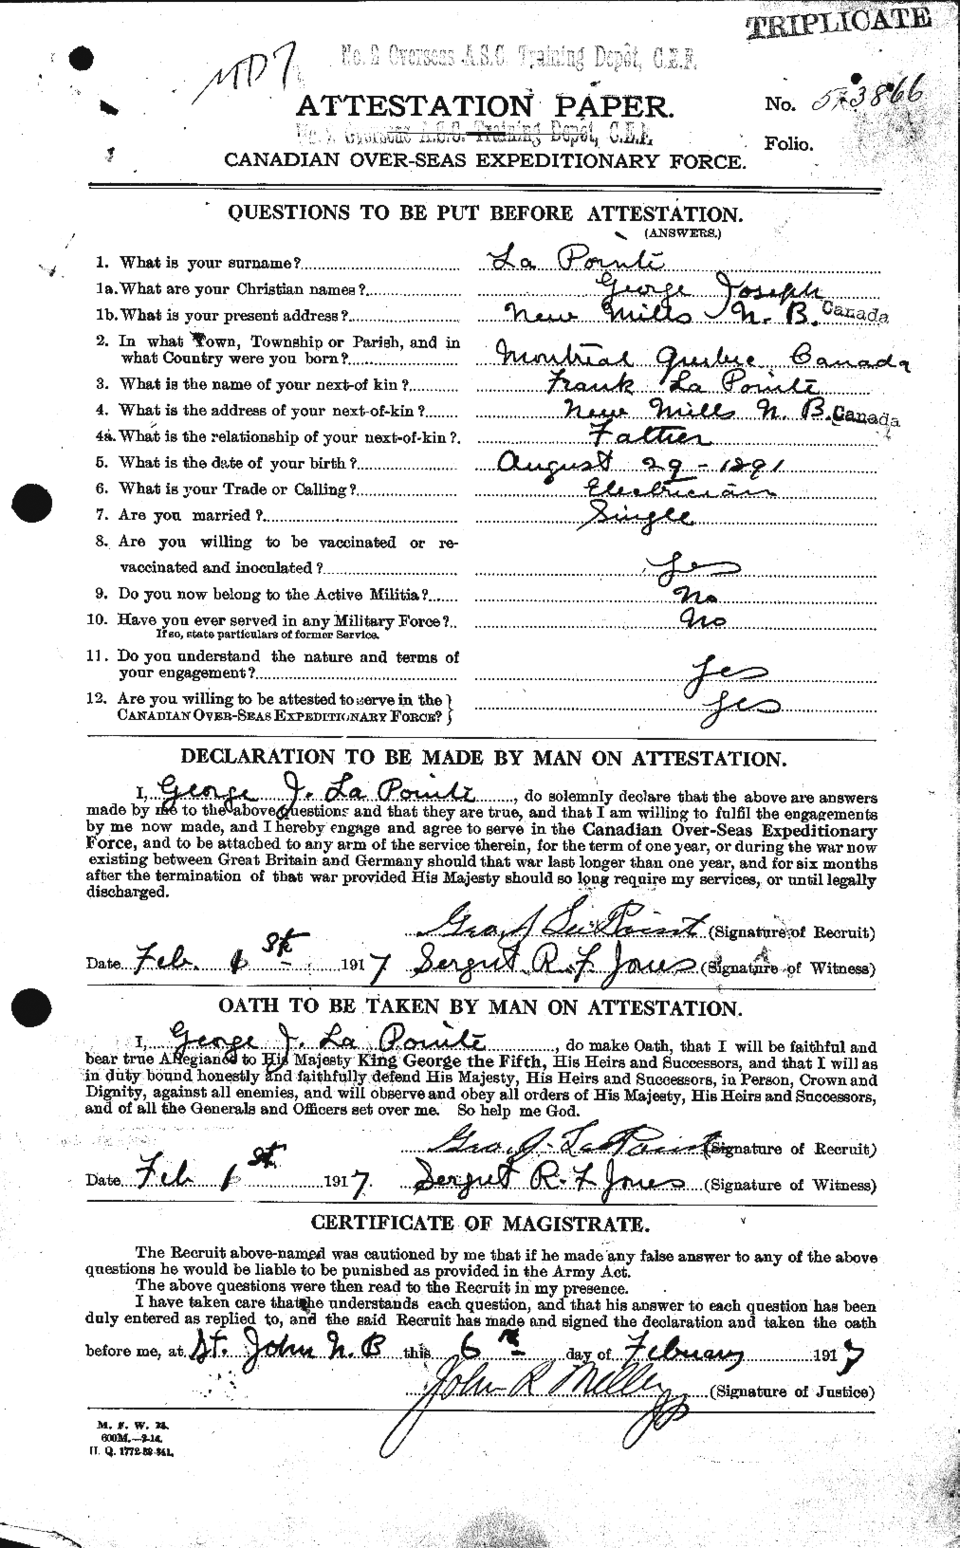 TRIPLICATE
MD7
No. 2 Overseas A.S.C. Training Depôt, C.E.F.
ATTESTATION PAPER.
No. 523866
No. 2 Overseas A.S.C. Training Depôt, C.E.F.
Folio.
CANADIAN OVER-SEAS EXPEDITIONARY FORCE.
QUESTIONS TO BE PUT BEFORE ATTESTATION.
(ANSWERS.)
1. What is your surname? La Pointe
1a. What are your Christian names? George Joseph
1b. What is your present address? New Mills N. B. Canada
2. In what Town, Township or Parish, and in
what Country were you born? Montreal Quebec Canada
3. What is the name of your next-of kin? Frank La Pointe
4. What is the address of your next-of-kin? New Mills N. B. Canada
4a. What is the relationship of your next-of-kin? Father
5. What is the date of your birth? August 29 - 1891
6. What is your Trade or Calling? Electrician
7. Are you married? Single
8. Are you willing to be vaccinated or re-
vaccinated and inoculated? Yes
9. Do you now belong to the Active Militia? No
10. Have you ever served in any Military Force? No
If so, state particulars of former Service.
11. Do you understand the nature and terms of
your engagement? Yes
12. Are you willing to be attested to serve in the
CANADIAN OVER-SEAS EXPEDITIONARY FORCE? Yes
DECLARATION TO BE MADE BY MAN ON ATTESTATION.
I, George J. La Pointe, do solemnly declare that the above are answers
made by me to the above questions and that they are true, and that I am willing to fulfil the engagements
by me now made, and I hereby engage and agree to serve in the Canadian Over-Seas Expeditionary
Force, and to be attached to any arm of the service therein, for the term of one year, or during the war now
existing between Great Britain and Germany should that war last longer than one year, and for six months
after the termination of that war provided His Majesty should so long require my services, or until legally
discharged.
Geo J La Point (Signature of Recruit)
Date Feb. 1st 1917 Sergut R. F Jones (Signature of Witness)
OATH TO BE TAKEN BY MAN ON ATTESTATION.
I, George J. La Pointe, do make Oath, that I will be faithful and
bear true Allegiance to His Majesty King George the Fifth, His Heirs and Successors, and that I will as
in duty bound honestly and faithfully defend His Majesty, His Heirs and Successors, in Person, Crown and
Dignity, against all enemies, and will observe and obey all orders of His Majesty, His Heirs and Successors,
and of all the Generals and Officers set over me. So help me God.
Geo J. La Point (Signature of Recruit)
Date Feb 1st 1917. Sergut R. F Jones (Signature of Witness)
CERTIFICATE OF MAGISTRATE.
The Recruit above-named was cautioned by me that if he made any false answer to any of the above
questions he would be liable to be punished as provided in the Army Act.
The above questions were then read to the Recruit in my presence.
I have taken care that he understands each question, and that his answer to each question has been
duly entered as replied to, and the said Recruit has made and signed the declaration and taken the oath
before me, at St. John N. B this 6th day of February 1917
John R Miller JP (Signature of Justice)
M. F. W. 23.
600M.—9-14.
H. Q. 1772-39-241.